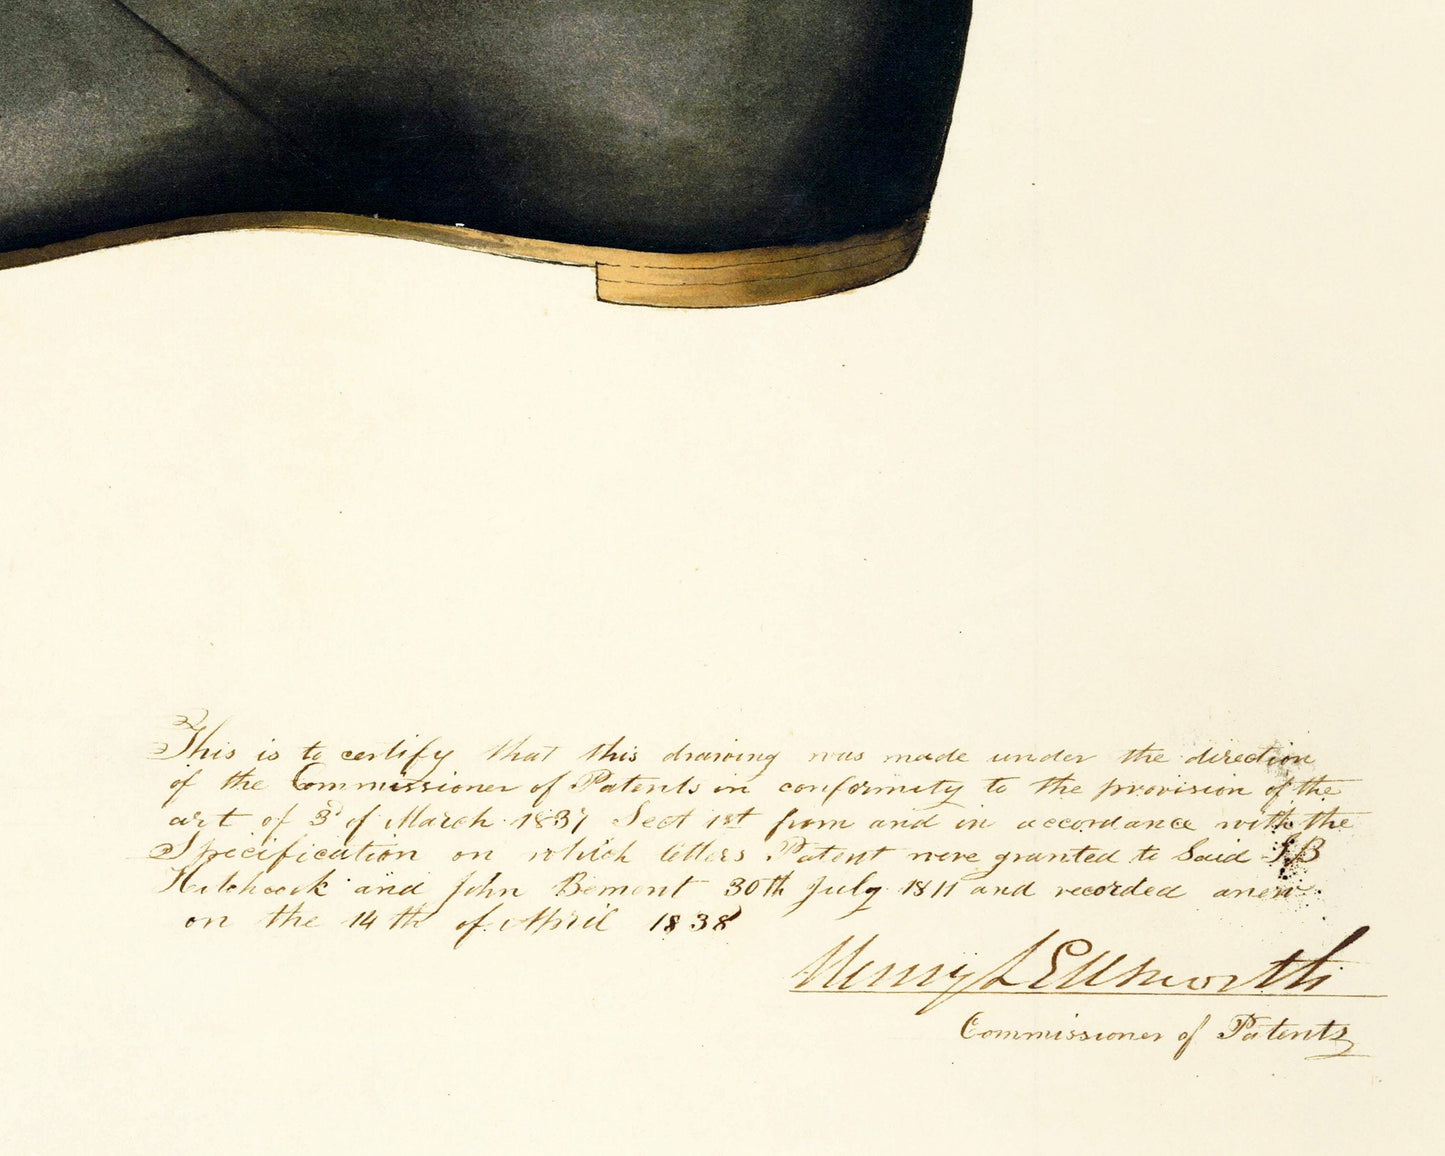 This is to certify that this drawing was made under the direction
of the Commissioner of Patents in conformity to the provision of the
act of 3d of March 1837 Sect 1st from and in accordance with the
Specification on which letters Patent were granted to Said
Hitchcock and John Bement 30th July 1811 and recorded anew
on the 14th of April 1838
Henry L Ellsworth
Commissioner of Patents